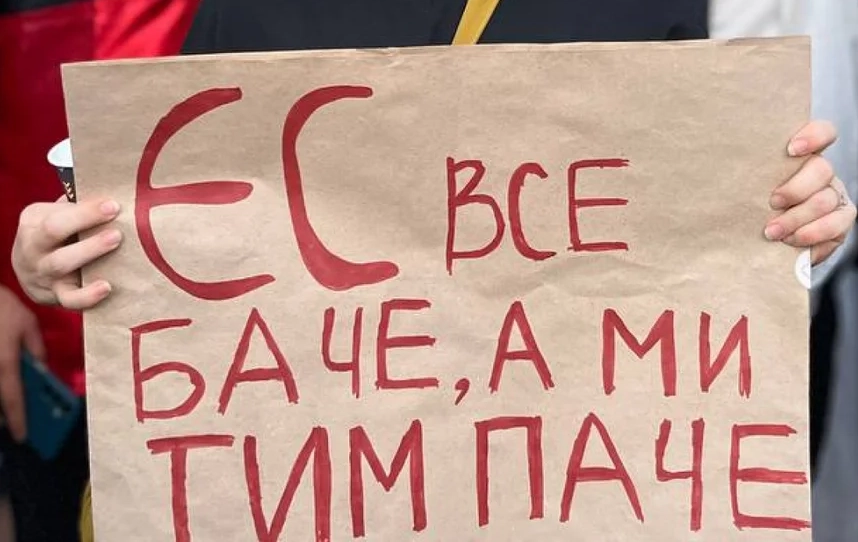 ЄС ВСЕ
БАЧЕ, А МИ
ТИМ ПАЧЕ